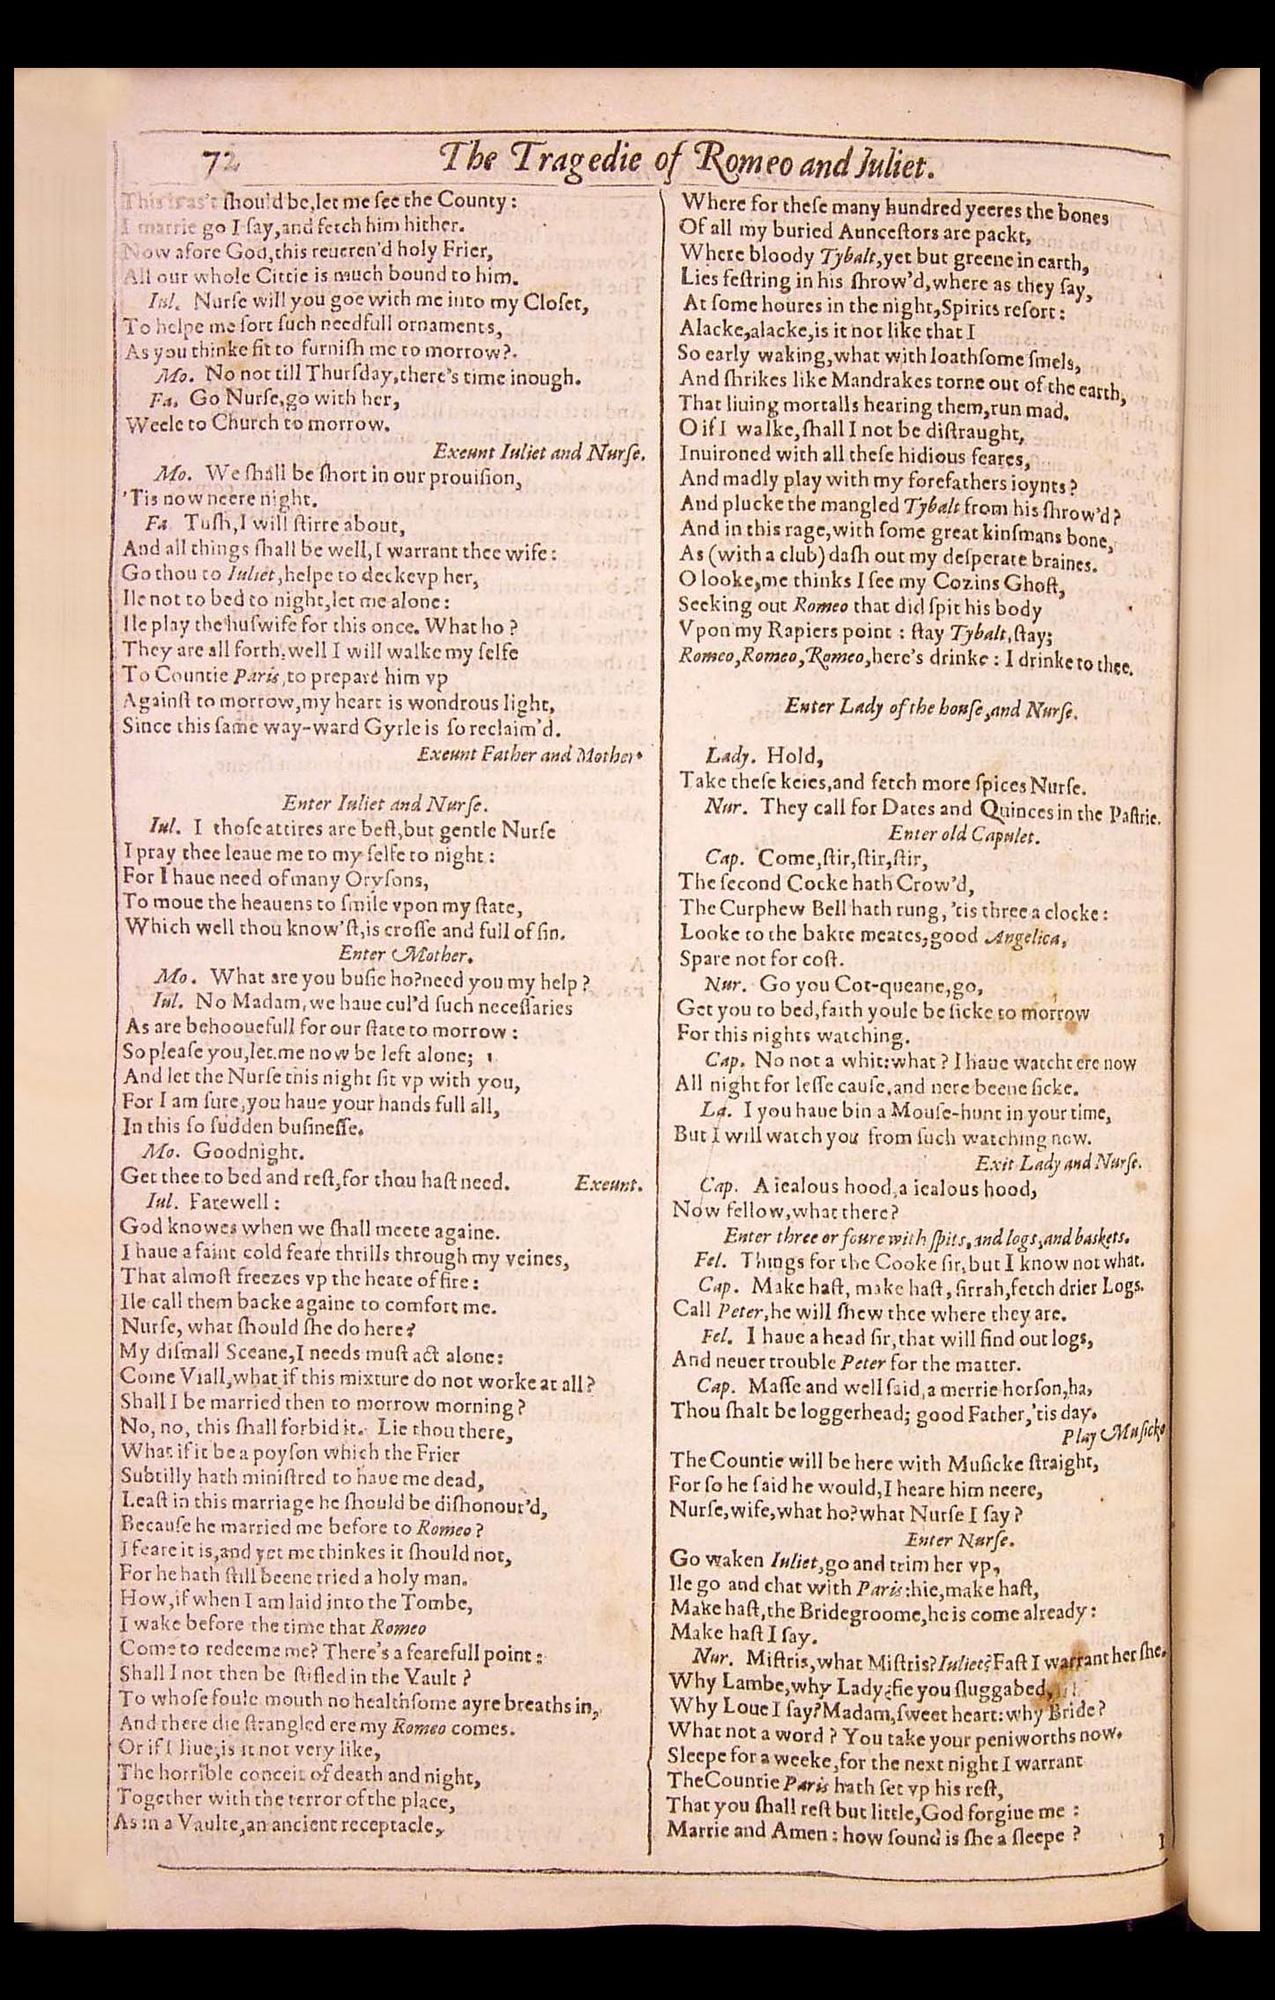 72
The Tragedie of Romeo and Iuliet.
This is as't ſhould be, let me ſee the County:
I marrie go I ſay, and fetch him hither.
Now afore God, this reueren'd holy Frier,
All our whole Cittie is much bound to him.
Iul. Nurſe will you goe with me into my Cloſet,
To helpe me ſort ſuch needfull ornaments,
As you thinke fit to furniſh me to morrow?.
Mo. No not till Thurſday, there's time inough.
Fa. Go Nurſe, go with her,
Weele to Church to morrow.
Exeunt Iuliet and Nurſe.
Mo. We ſhall be ſhort in our prouiſion,
'Tis now neere night.
Fa Tuſh, I will ſtirre about,
And all things ſhall be well, I warrant thee wife:
Go thou to Iuliet, helpe to decke vp her,
Ile not to bed to night, let me alone:
Ile play the huſwife for this once. What ho?
They are all forth, well I will walke my ſelfe
To Countie Paris, to prepare him vp
Againſt to morrow, my heart is wondrous light,
Since this ſame way-ward Gyrle is ſo reclaim'd.
Exeunt Father and Mother.
Enter Iuliet and Nurſe.
Iul. I thoſe attires are beſt, but gentle Nurſe
I pray thee leaue me to my ſelfe to night:
For I haue need of many Oryſons,
To moue the heauens to ſmile vpon my ſtate,
Which well thou know'ſt, is croſſe and full of ſin.
Enter Mother.
Mo. What are you buſie ho? need you my help?
Iul. No Madam, we haue cul'd ſuch neceſſaries
As are behoouefull for our ſtate to morrow:
So pleaſe you, let me now be left alone;
And let the Nurſe this night ſit vp with you,
For I am ſure, you haue your hands full all,
In this ſo ſudden buſineſſe.
Mo. Goodnight.
Get thee to bed and reſt, for thou haſt need. Exeunt.
Iul. Farewell:
God knowes when we ſhall meete againe.
I haue a faint cold feare thrills through my veines,
That almoſt freezes vp the heate of fire:
Ile call them backe againe to comfort me.
Nurſe, what ſhould ſhe do here?
My diſmall Sceane, I needs muſt act alone:
Come Viall, what if this mixture do not worke at all?
Shall I be married then to morrow morning?
No, no, this ſhall forbid it. Lie thou there,
What if it be a poyſon which the Frier
Subtilly hath miniſtred to haue me dead,
Leaſt in this marriage he ſhould be diſhonour'd,
Becauſe he married me before to Romeo?
I feare it is, and yet me thinkes it ſhould not,
For he hath ſtill beene tried a holy man.
How, if when I am laid into the Tombe,
I wake before the time that Romeo
Come to redeeme me? There's a fearefull point:
Shall I not then be ſtifled in the Vault?
To whoſe foule mouth no healthſome ayre breaths in,
And there die ſtrangled ere my Romeo comes.
Or if I liue, is it not very like,
The horrible conceit of death and night,
Together with the terror of the place,
As in a Vaulte, an ancient receptacle,
Where for theſe many hundred yeeres the bones
Of all my buried Aunceſtors are packt,
Where bloody Tybalt, yet but greene in earth,
Lies feſtring in his ſhrow'd, where as they ſay,
At ſome houres in the night, Spirits reſort:
Alacke, alacke, is it not like that I
So early waking, what with loathſome ſmels,
And ſhrikes like Mandrakes torne out of the earth,
That liuing mortalls hearing them, run mad.
O if I walke, ſhall I not be diſtraught,
Inuironed with all theſe hidious feares,
And madly play with my forefathers ioynts?
And plucke the mangled Tybalt from his ſhrow'd?
And in this rage, with ſome great kinſmans bone,
As (with a club) daſh out my deſperate braines.
O looke, me thinks I ſee my Cozins Ghoſt,
Seeking out Romeo that did ſpit his body
Vpon my Rapiers point: ſtay Tybalt, ſtay;
Romeo, Romeo, Romeo, here's drinke: I drinke to thee.
Enter Lady of the houſe, and Nurſe.
Lady. Hold,
Take theſe keies, and fetch more ſpices Nurſe.
Nur. They call for Dates and Quinces in the Paſtrie.
Enter old Capulet.
Cap. Come, ſtir, ſtir, ſtir,
The ſecond Cocke hath Crow'd,
The Curphew Bell hath rung, 'tis three a clocke:
Looke to the bakte meates, good Angelica,
Spare not for coſt.
Nur. Go you Cot-queane, go,
Get you to bed, faith youle be ſicke to morrow
For this nights watching.
Cap. No not a whit: what? I haue watcht ere now
All night for leſſe cauſe, and nere beene ſicke.
La. I you haue bin a Mouſe-hunt in your time,
But I will watch you from ſuch watching now.
Exit Lady and Nurſe.
Cap. A iealous hood, a iealous hood,
Now fellow, what there?
Enter three or foure with ſpits, and logs, and baskets.
Fel. Things for the Cooke ſir, but I know not what.
Cap. Make haſt, make haſt, ſirrah, fetch drier Logs.
Call Peter, he will ſhew thee where they are.
Fel. I haue a head ſir, that will find out logs,
And neuer trouble Peter for the matter.
Cap. Maſſe and well ſaid, a merrie horſon, ha,
Thou ſhalt be loggerhead; good Father, 'tis day.
Play Muſicke
The Countie will be here with Muſicke ſtraight,
For ſo he ſaid he would, I heare him neere,
Nurſe, wife, what ho? what Nurſe I ſay?
Enter Nurſe.
Go waken Iuliet, go and trim her vp,
Ile go and chat with Paris: hie, make haſt,
Make haſt, the Bridegroome, he is come already:
Make haſt I ſay.
Nur. Miſtris, what Miſtris? Iuliet? Faſt I warrant her ſhe.
Why Lambe, why Lady? fie you ſluggabed,
Why Loue I ſay? Madam, ſweet heart: why Bride?
What not a word? You take your peniworths now.
Sleepe for a weeke, for the next night I warrant
The Countie Paris hath ſet vp his reſt,
That you ſhall reſt but little, God forgiue me:
Marrie and Amen: how ſound is ſhe a ſleepe?
I